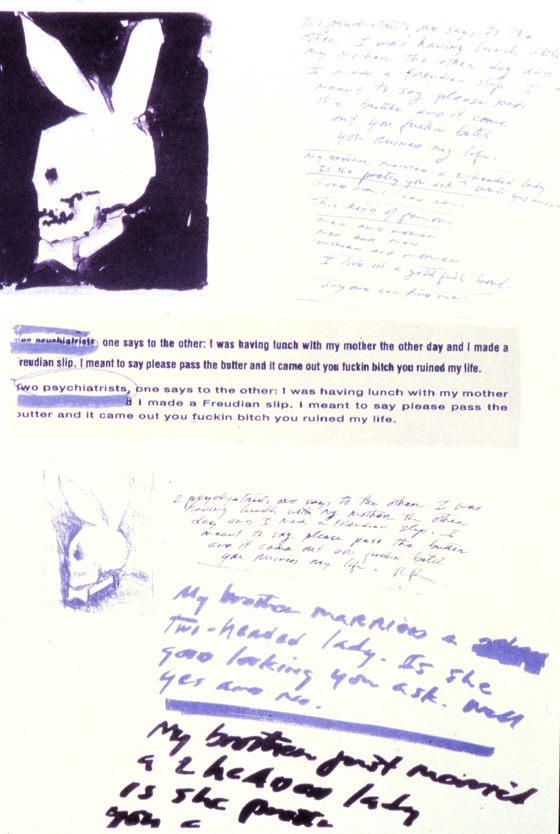 Two psychiatrists one says to the
other. I was having lunch with
my mother the other day and
I made a Freudian slip. I
meant to say please pass
the butter and it came
out you fuckin bitch
you ruined my life.
My brother married a 2-headed lady
Is she pretty you ask well yes
men and women
men and men
women and women
I live in a gold fish bowl.
two psychiatrists, one says to the other: I was having lunch with my mother the other day and I made a
reudian slip. I meant to say please pass the butter and it came out you fuckin bitch you ruined my life.
two psychiatrists, one says to the other: I was having lunch with my mother
I made a Freudian slip. I meant to say please pass the
butter and it came out you fuckin bitch you ruined my life.
2 psychiatrists, one says to the other I was
having lunch with my mother the other
day and I had a Freudian slip. I
meant to say please pass the butter
and it came out you fuckin bitch
you ruined my life.
My brother married a
two-headed lady. Is she
good looking you ask. Well
yes and no.
My brother just married
a 2 headed lady
is she pretty
you